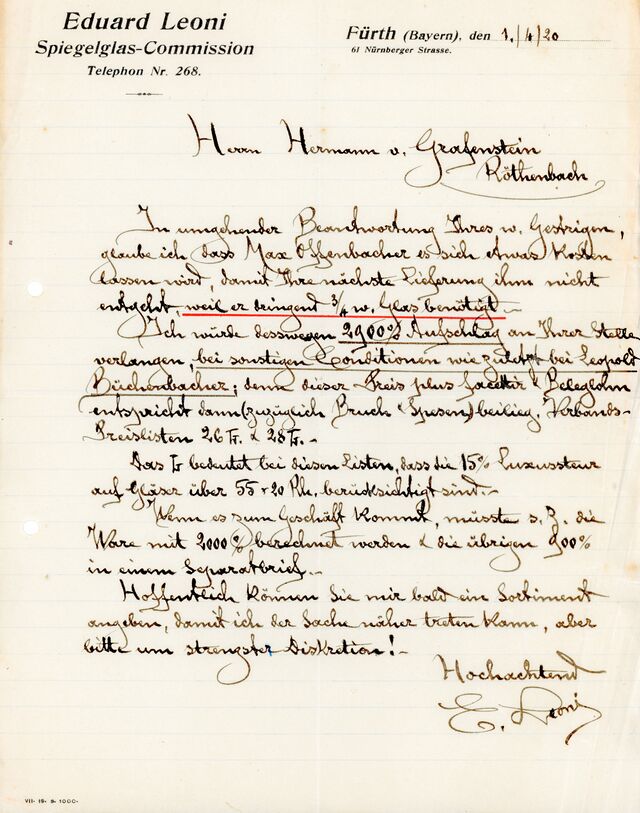 Eduard Leoni
Spiegelglas-Commission
Telephon Nr. 268.
Fürth (Bayern), den 1./4/20
61 Nürnberger Strasse.
Herrn Hermann v. Grafenstein
Röthenbach
In umgehender Beantwortung Ihres w. Gestrigen,
glaube ich dass Max Offenbacher es sich etwas kosten
lassen wird, damit Ihre nächste Lieferung ihm nicht
entgeht, weil er dringend 3/4 w. Glas benötigt.-
Ich würde desswegen 2900% Aufschlag an Ihrer Stelle
verlangen, bei sonstigen Conditionen wie zuletzt bei Leopold
Büchenbacher; denn dieser Preis plus facettir & Beleglohn
entspricht dann (zuzüglich Bruch & Spesen) beilieg. Verbands-
Preislisten 26 & 28
Das bedeutet bei diesen Listen, dass die 15% Luxussteur
auf Gläser über 55 + 20 Rh. berücksichtigt sind.-
Wenn es zum Geschäft kommt, müsste s. Z. die
Ware mit 2000% berechnet werden & die übrigen 900%
in einem Separatbrief.-
Hoffentlich können Sie mir bald ein Sortiment
angeben, damit ich der Sache näher treten kann, aber
bitte um strengster Diskretion!-
Hochachtend
E. Leoni
VII- 19- 9- 1000-